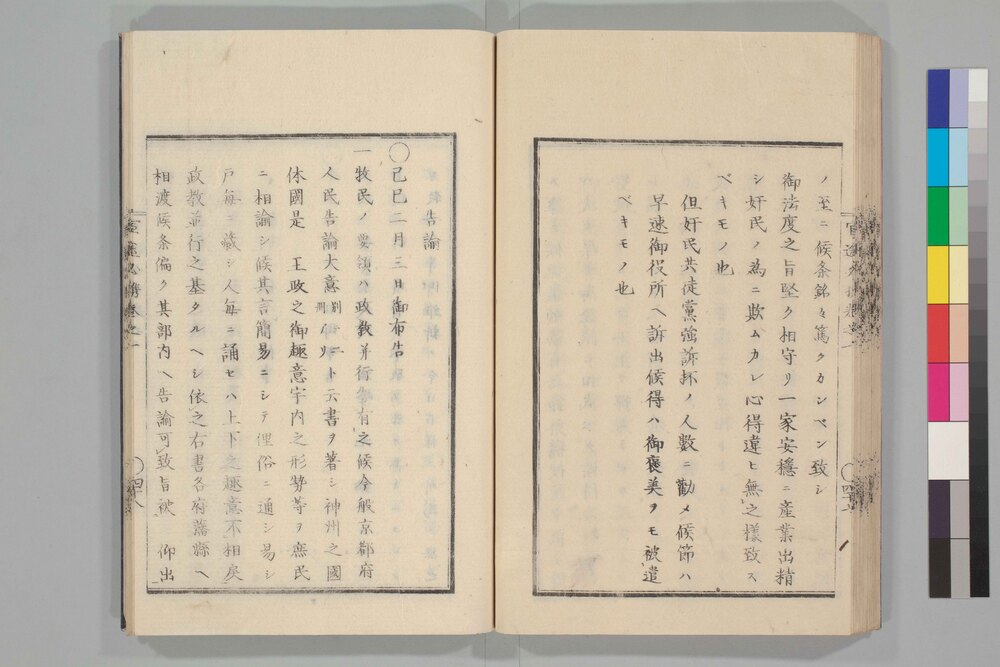 ノ至ニ候条銘々篤クカンベン致シ
御法度之旨堅ク相守リ一家安穏ニ産業出精
シ奸民ノ為ニ欺ムカレ心得違ヒ無之様致ス
ベキモノ也
但奸民共徒黨強訴抔ノ人数ニ勸メ候節ハ
早速御役所ヘ訴出候得ハ御褒美ヲモ被遣
ベキモノ也
告諭
〇己巳二月三日御布告
一牧民ノ要領ハ政教并行ニ有之候今般京都府
人民告諭大意別ニ冊アリト云書ヲ著シ神州之國
体國是 王政之御趣意宇内之形勢等ヲ庶民
ニ相諭シ候其言簡易ニシテ俚俗ニ通シ易シ
戸毎ニ藏シ人毎ニ誦セハ上下之趣意不相戻
政教並行之基タルヘシ依之右書各府藩縣ヘ
相渡候条偏ク其部内ヘ告諭可致旨被 仰出
〇四十八